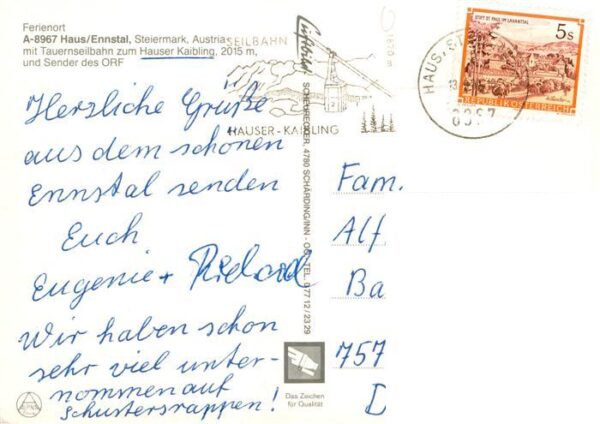 Ferienort
A-8967 Haus/Ennstal, Steiermark, Austria
mit Tauernseilbahn zum Hauser Kaibling, 2015 m,
und Sender des ORF
SEILBAHN
Luftbild
1870 m
HAUSER-KAIBLING
STIFT ST. PAUL IM LAVANTTAL
5s
REPUBLIK ÖSTERREICH
HAUS,
8967
Herzliche Grüße
aus dem schönen
Ennstal senden
Euch
Eugenie + Richard
Wir haben schon
sehr viel unter-
nommen auf
Schustersrappen!
4780 SCHÄRDING/INN
07712/2329
Fam.
Alf
Ba
757
D
Das Zeichen
für Qualität